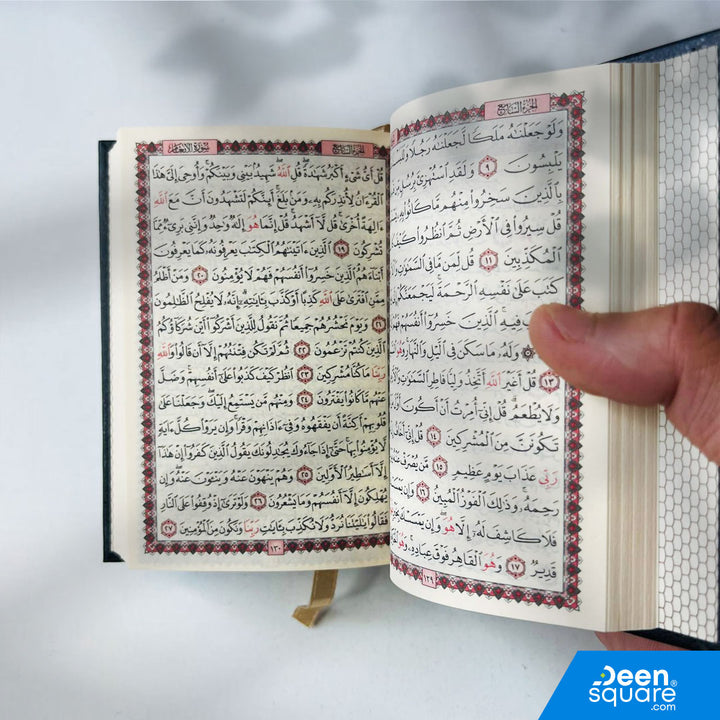 الجزء السابع
وَلَوْ جَعَلْنَٰهُ مَلَكًا لَّجَعَلْنَٰهُ رَجُلًا
يَلْبِسُونَ ٩ وَلَقَدِ ٱسْتُهْزِئَ بِرُسُلٍ مِّن
بِٱلَّذِينَ سَخِرُوا۟ مِنْهُم مَّا كَانُوا۟ بِهِۦ
قُلْ سِيرُوا۟ فِى ٱلْأَرْضِ ثُمَّ ٱنظُرُوا۟ كَيْفَ
ٱلْمُكَذِّبِينَ ١١ قُل لِّمَن مَّا فِى ٱلسَّمَٰوَٰتِ
كَتَبَ عَلَىٰ نَفْسِهِ ٱلرَّحْمَةَ لَيَجْمَعَنَّكُمْ
فِيهِ ٱلَّذِينَ خَسِرُوٓا۟ أَنفُسَهُمْ
وَلَهُۥ مَا سَكَنَ فِى ٱلَّيْلِ وَٱلنَّهَارِ وَهُوَ
١٣ قُلْ أَغَيْرَ ٱللَّهِ أَتَّخِذُ وَلِيًّا فَاطِرِ ٱلسَّمَٰوَٰتِ
وَلَا يُطْعَمُ قُلْ إِنِّىٓ أُمِرْتُ أَنْ أَكُونَ
تَكُونَنَّ مِنَ ٱلْمُشْرِكِينَ ١٤ قُلْ إِنِّىٓ أَخَافُ
رَبِّى عَذَابَ يَوْمٍ عَظِيمٍ ١٥ مَّن يُصْرَفْ عَنْهُ
رَحِمَهُۥ وَذَٰلِكَ ٱلْفَوْزُ ٱلْمُبِينُ ١٦ وَإِن يَمْسَسْكَ
فَلَا كَاشِفَ لَهُۥٓ إِلَّا هُوَ وَإِن يَمْسَسْكَ
قَدِيرٌ ١٧ وَهُوَ ٱلْقَاهِرُ فَوْقَ عِبَادِهِۦ وَهُوَ
١٢٩
الجزء السابع
سورة الأنعام
قُلْ أَىُّ شَىْءٍ أَكْبَرُ شَهَٰدَةً قُلِ ٱللَّهُ شَهِيدٌۢ بَيْنِى وَبَيْنَكُمْ وَأُوحِىَ إِلَىَّ هَٰذَا
ٱلْقُرْءَانُ لِأُنذِرَكُم بِهِۦ وَمَنۢ بَلَغَ أَئِنَّكُمْ لَتَشْهَدُونَ أَنَّ مَعَ ٱللَّهِ
ءَالِهَةً أُخْرَىٰ قُل لَّآ أَشْهَدُ قُلْ إِنَّمَا هُوَ إِلَٰهٌ وَٰحِدٌ وَإِنَّنِى بَرِىٓءٌ مِّمَّا
تُشْرِكُونَ ١٩ ٱلَّذِينَ ءَاتَيْنَٰهُمُ ٱلْكِتَٰبَ يَعْرِفُونَهُۥ كَمَا يَعْرِفُونَ
أَبْنَآءَهُمُ ٱلَّذِينَ خَسِرُوٓا۟ أَنفُسَهُمْ فَهُمْ لَا يُؤْمِنُونَ ٢٠ وَمَنْ أَظْلَمُ
مِمَّنِ ٱفْتَرَىٰ عَلَى ٱللَّهِ كَذِبًا أَوْ كَذَّبَ بِـَٔايَٰتِهِۦٓ إِنَّهُۥ لَا يُفْلِحُ ٱلظَّٰلِمُونَ
٢١ وَيَوْمَ نَحْشُرُهُمْ جَمِيعًا ثُمَّ نَقُولُ لِلَّذِينَ أَشْرَكُوٓا۟ أَيْنَ شُرَكَآؤُكُمُ
ٱلَّذِينَ كُنتُمْ تَزْعُمُونَ ٢٢ ثُمَّ لَمْ تَكُن فِتْنَتُهُمْ إِلَّآ أَن قَالُوا۟ وَٱللَّهِ
رَبِّنَا مَا كُنَّا مُشْرِكِينَ ٢٣ ٱنظُرْ كَيْفَ كَذَبُوا۟ عَلَىٰٓ أَنفُسِهِمْ وَضَلَّ
عَنْهُم مَّا كَانُوا۟ يَفْتَرُونَ ٢٤ وَمِنْهُم مَّن يَسْتَمِعُ إِلَيْكَ وَجَعَلْنَا عَلَىٰ
قُلُوبِهِمْ أَكِنَّةً أَن يَفْقَهُوهُ وَفِىٓ ءَاذَانِهِمْ وَقْرًا وَإِن يَرَوْا۟ كُلَّ ءَايَةٍ
لَّا يُؤْمِنُوا۟ بِهَا حَتَّىٰٓ إِذَا جَآءُوكَ يُجَٰدِلُونَكَ يَقُولُ ٱلَّذِينَ كَفَرُوٓا۟ إِنْ هَٰذَآ
إِلَّآ أَسَٰطِيرُ ٱلْأَوَّلِينَ ٢٥ وَهُمْ يَنْهَوْنَ عَنْهُ وَيَنْـَٔوْنَ عَنْهُ وَإِن
يُهْلِكُونَ إِلَّآ أَنفُسَهُمْ وَمَا يَشْعُرُونَ ٢٦ وَلَوْ تَرَىٰٓ إِذْ وُقِفُوا۟ عَلَى ٱلنَّارِ
فَقَالُوا۟ يَٰلَيْتَنَا نُرَدُّ وَلَا نُكَذِّبَ بِـَٔايَٰتِ رَبِّنَا وَنَكُونَ مِنَ ٱلْمُؤْمِنِينَ ٢٧
١٣٠
Deen
square®
.com